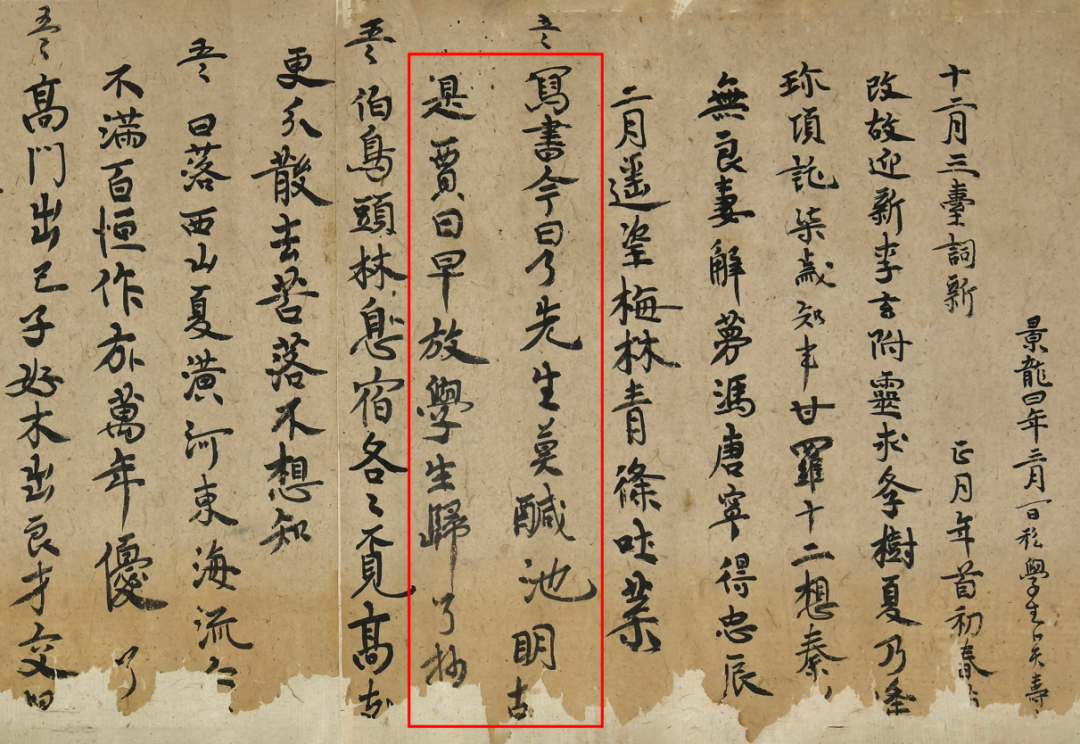 景龍四年三月一日私學生卜天壽
十二月三臺詞新 正月年首初春
改故迎新李玄附靈求學樹夏乃逢
珎項託柒歲知事甘羅十二想秦
無良妻解夢馮唐寧得忠辰
二月遥望梅林青條吐葉
五言 寫書今日了先生莫醎池明
是賈日早放學生歸 了抄
五言 伯鳥頭林息宿各〻覓高
更分散去苦落不想知
五言 日落西山夏潢河東海流人〻
不滿百恒作万萬年優 了
五言 高門出己子好木出良才交